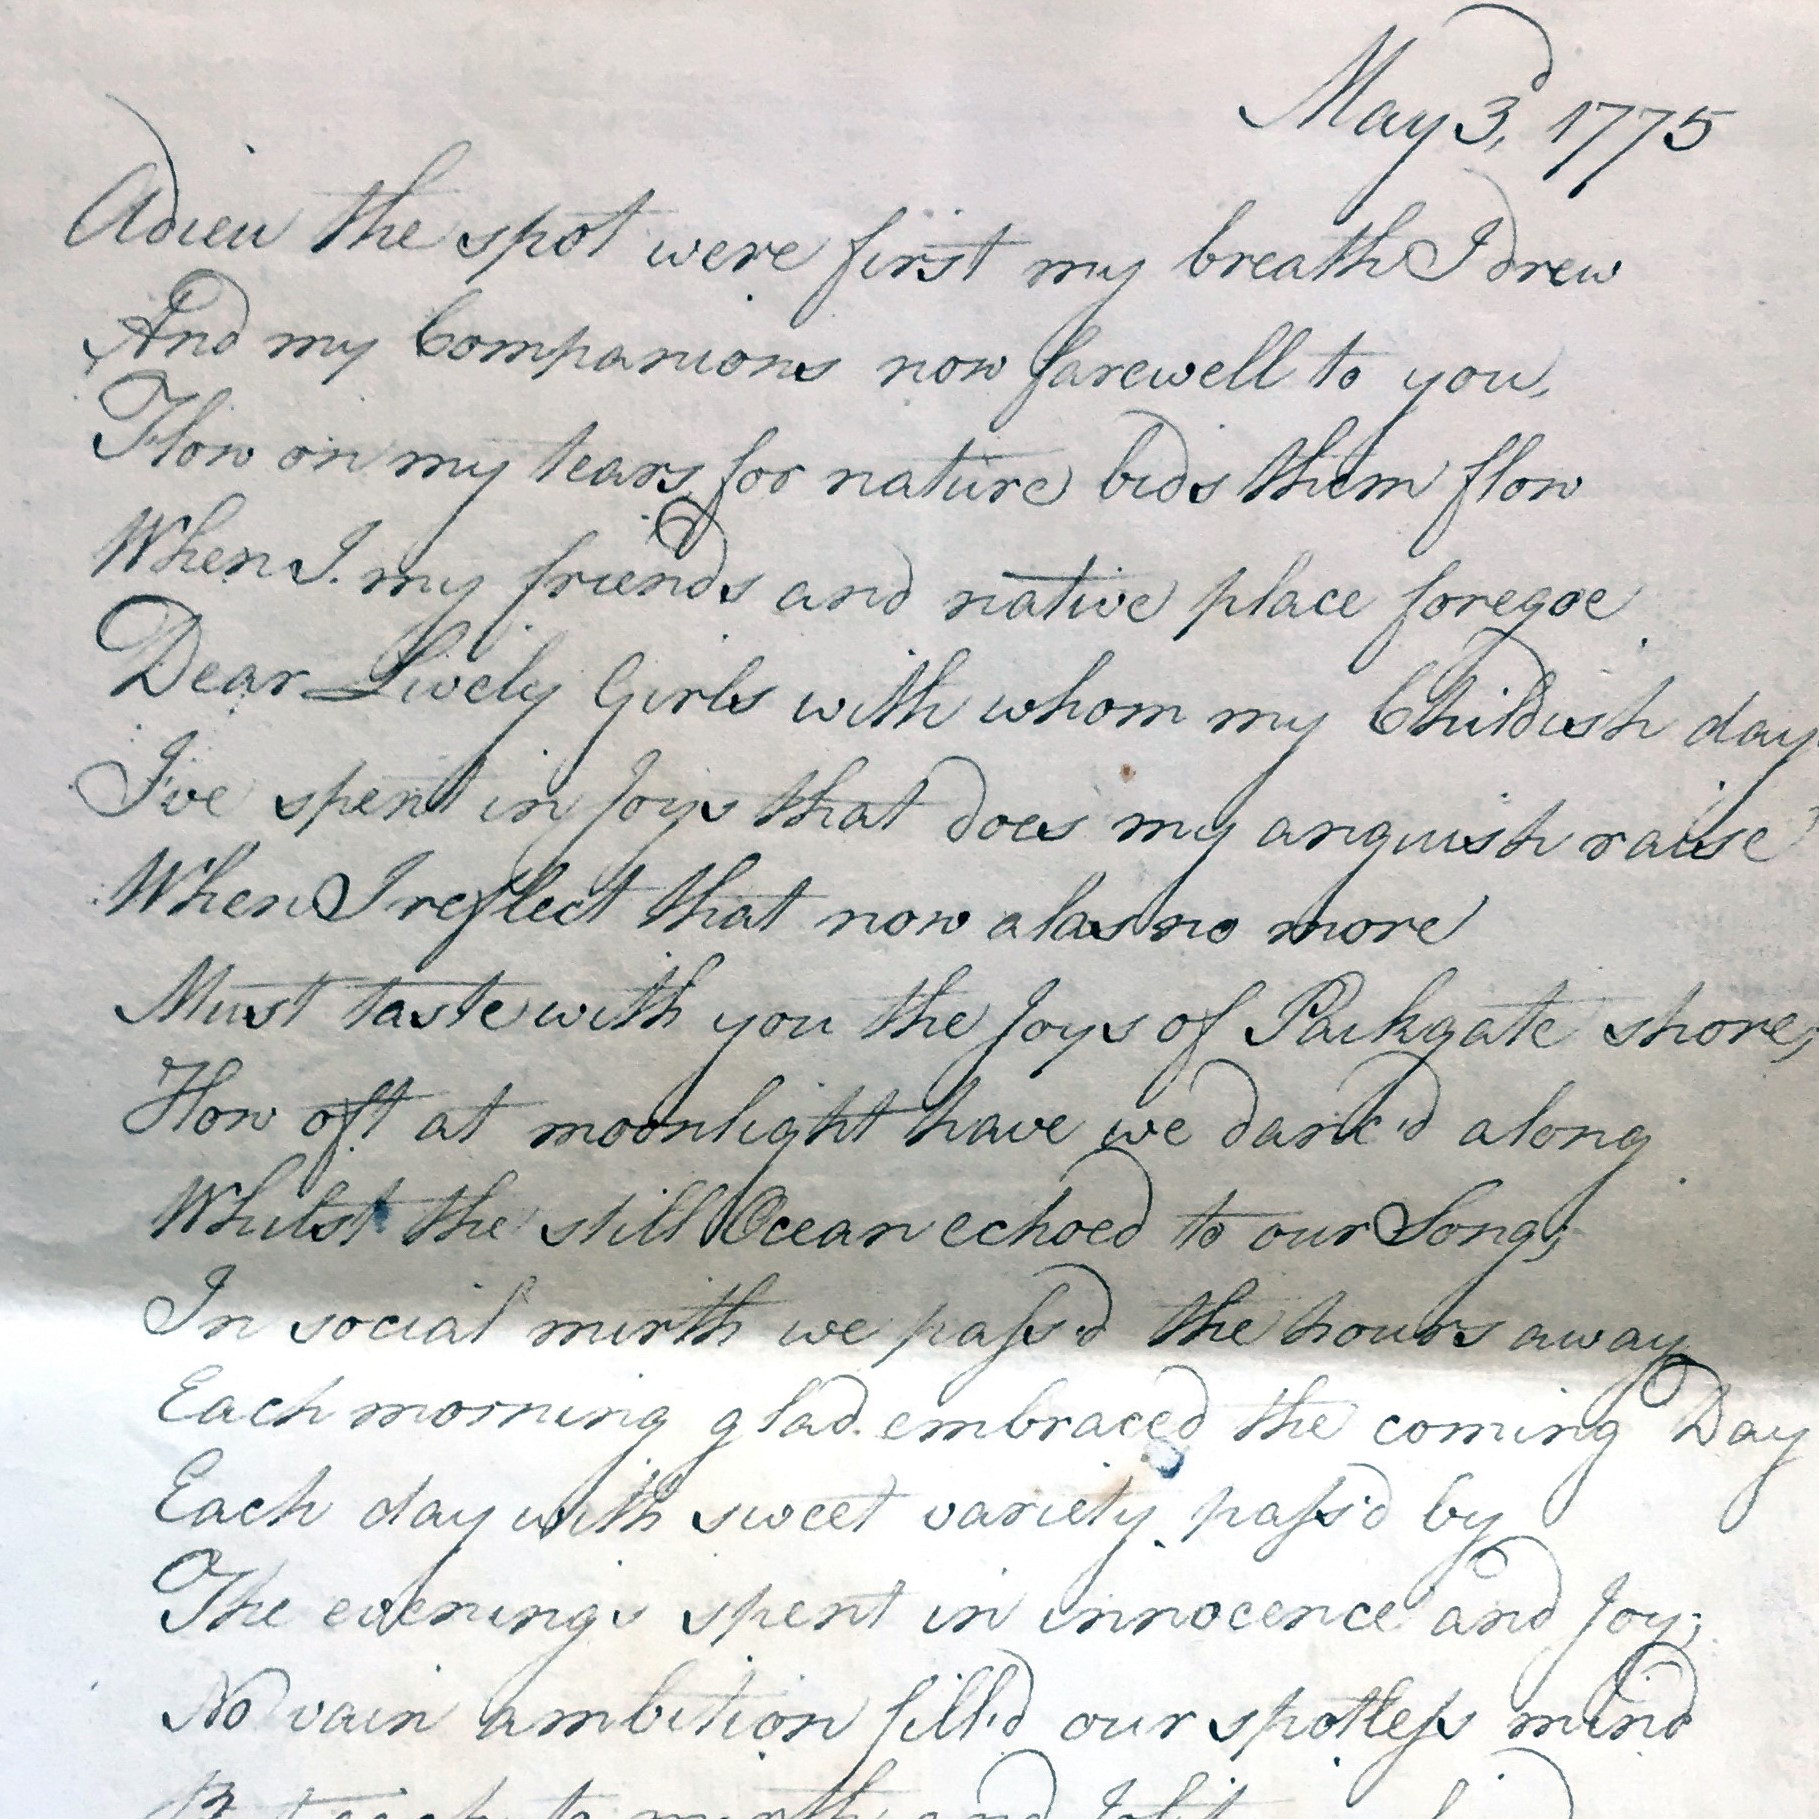 May 3d, 1775
Adieu the spot were first my breath I drew
And my Companions now farewell to you,
Flow on my tears, for nature bids them flow
When I. my friends and native place foregoe
Dear Lively Girls with whom my Childish day
I've spent in Joys that does my anguish raise
When I reflect that now alas no more
Must taste with you the Joys of Parkgate shore,
How oft at moonlight have we danc'd along
Whilst the still Ocean echoed to our Song;
In social mirth we pass'd the hours away
Each morning glad embraced the coming Day
Each day with sweet variety pass'd by
The evenings spent in innocence and Joy;
No vain ambition fill'd our spotless mind
mirth and